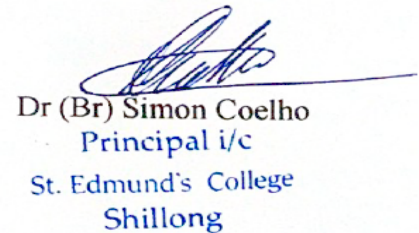 Dr (Br) Simon Coelho
Principal i/c
St. Edmund's College
Shillong